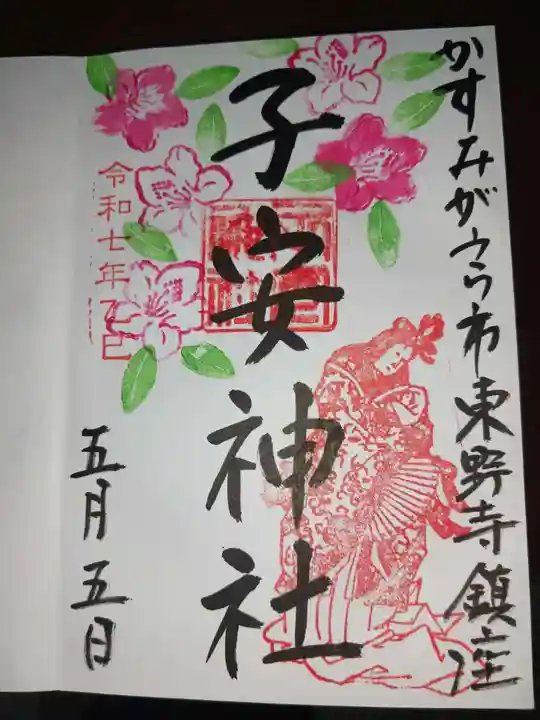 かすみがうら市東野寺鎮座
子安神社
令和七年乙巳
五月五日